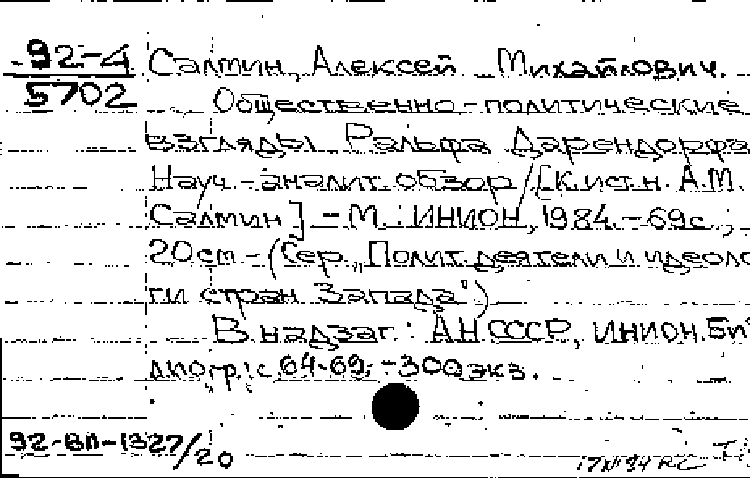 92-4 Салтин, Алексей Михайлович.
5702 Общественно-политические
взгляды Ральфа Дарендорфа
Науч.-аналит. обзор / [К.ист.н. А.М.
Салтин] - М.: ИНИОН, 1984. - 69 с.;
20 cm - (Сер. „Полит. деятели и идеоло
ги стран Запада")
В надзаг.: АН СССР, ИНИОН. Биб
лиогр.: с. 64-69. - 300 экз.
92-ВЛ-1327/20